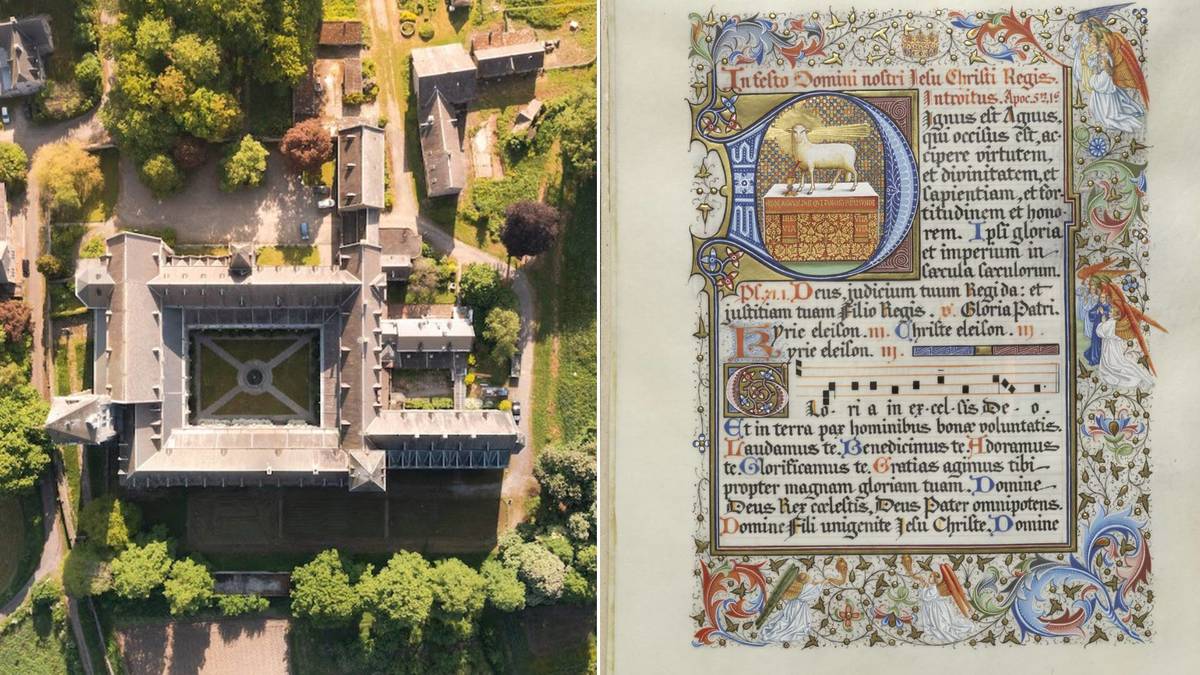 In festo Domini nostri Jesu Christi Regis.
Introitus. Apoc. 5.12.
Dignus est Agnus,
qui occisus est, ac-
cipere virtutem,
et divinitatem, et
sapientiam, et for-
titudinem et hono-
rem. Ipsi gloria
et imperium in
sæcula sæculorum.
Ps. 71.1. Deus, judicium tuum Regi da: et
justitiam tuam Filio Regis. v. Gloria Patri.
Kyrie eleison. iij. Christe eleison. iij.
Kyrie eleison. iij.
Glo - ri a in ex - cel - sis De - o.
Et in terra pax hominibus bonæ voluntatis.
Laudamus te. Benedicimus te. Adoramus
te. Glorificamus te. Gratias agimus tibi
propter magnam gloriam tuam. Domine
Deus Rex cælestis, Deus Pater omnipotens.
Domine Fili unigenite Jesu Christe. Domine